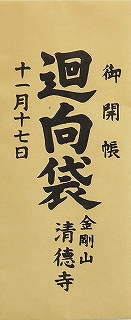 御開帳
迴向袋
十一月十七日
金剛山
清徳寺